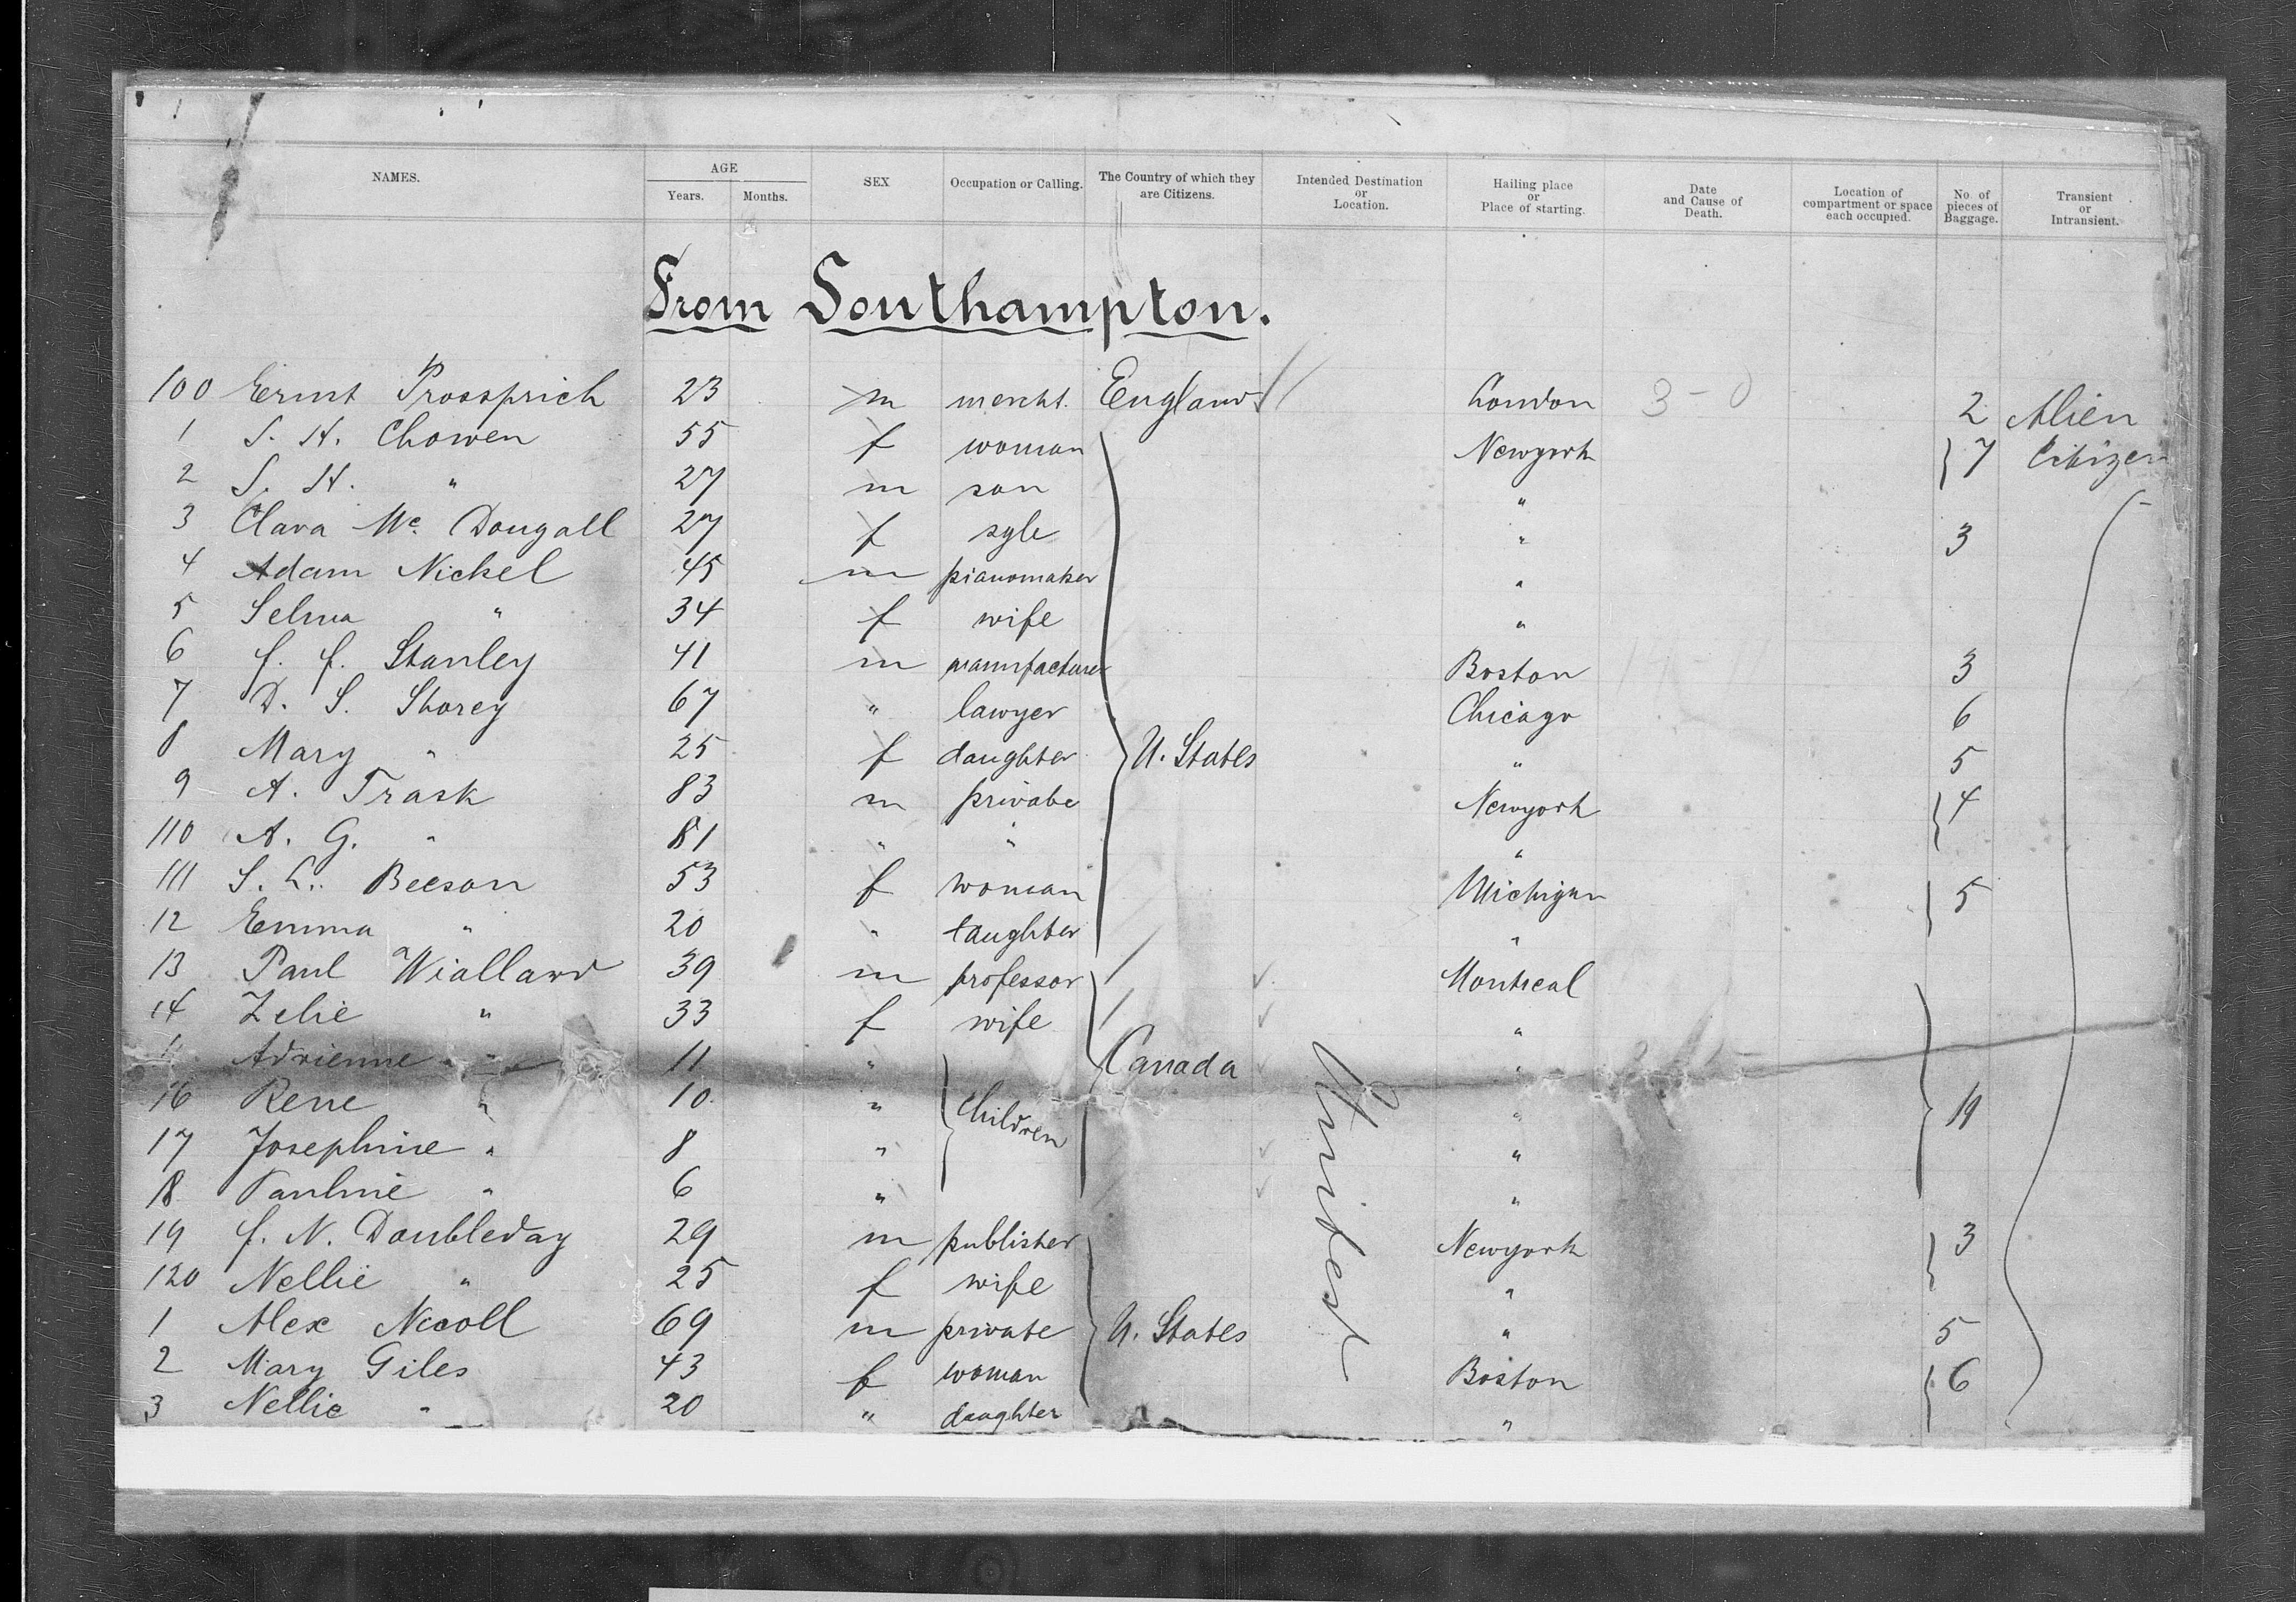 NAMES. AGE SEX Occupation or Calling. The Country of which they are Citizens. Intended Destination or Location. Hailing place or Place of starting. Date and Cause of Death. Location of compartment or space each occupied. No. of pieces of Baggage. Transient or Intransient.
Years. Months.
From Southampton.
100 Ernst Prossprich 23 m mercht. England London 3-0 2 Alien
1 S. H. Chowen 55 f woman Newyork 7 Citizen
2 S. H. " 27 m son "
3 Clara Mc. Dougall 27 f sgle " 3
4 Adam Nickel 45 m pianomaker "
5 Selma " 34 f wife "
6 f. f. Stanley 41 m manufacturer Boston 3
7 D. S. Shorey 67 " lawyer Chicago 6
8 Mary " 25 f daughter U. States " 5
9 A. Trask 83 m private Newyork 4
110 A. G. " 81 " " "
111 S. L. Beeson 53 f woman Michigan 5
12 Emma " 20 " daughter "
13 Paul Wiallard 39 m professor Montreal
14 Zelie " 33 f wife "
Adrienne " 11 " Canada "
16 Rene " 10 " children " 19
17 Josephine " 8 " "
18 Pauline " 6 " "
19 f. N. Doubleday 29 m publisher Newyork 3
120 Nellie " 25 f wife "
1 Alex Nicoll 69 m private U. States " 5
2 Mary Giles 43 f woman Boston 6
3 Nellie " 20 " daughter "